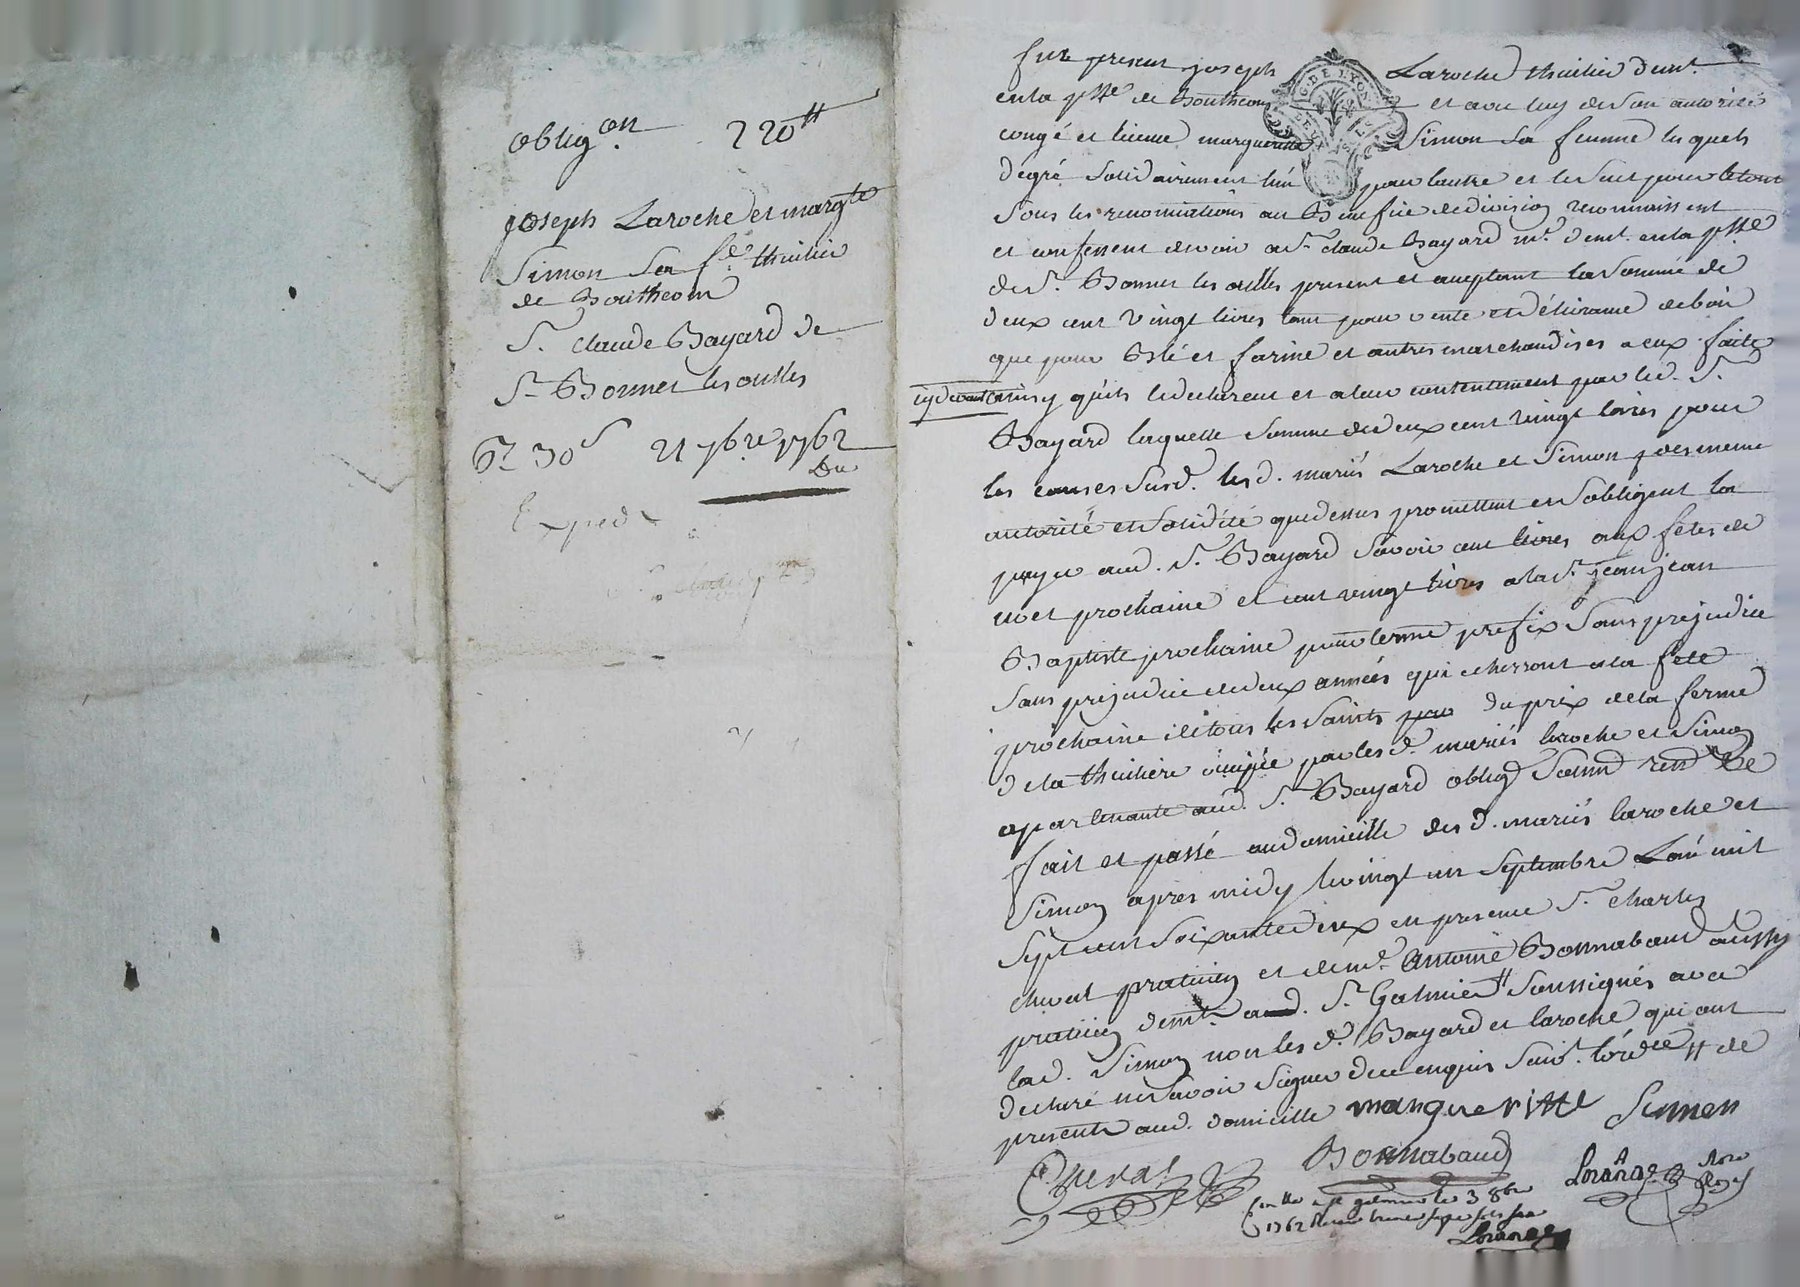 obligon. 220tt
joseph Laroche et margte
Simon sa fe. thuilier
de Boutheon
Sr. claude Bayard de
St Bonnet les oulles
Gr 30s 21 7bre 1762
Du
Exped
fut present joseph Laroche thuilier demt.
en la psse de Boutheon et avec luy de son autorité
congé et licence margueritte Simon sa femme lesquels
de gré solidairement l'un pour l'autre et le seul pour le tout
sous les renonciations au Benefice de division reconnoissent
et confessent devoir a Sr. claude Bayard md. demt. en la psse
de St. Bonnet les oulles present et acceptant la somme de
deux cent vingt livres tant pour vente et délivrance de bois
que pour Blé et farine et autres marchandises a eux faite
cy devant ainsy qu'ils le declarent et a leur contentement par led. Sr.
Bayard laquelle somme de deux cent vingt livres pour
les causes susd. lesd. mariés Laroche et Simon de meme
autorité et solidité que dessus promettent et s'obligent la
payer aud. Sr. Bayard savoir cent livres aux fetes de
noel prochaine et cent vingt livres a la St. jean jean
Baptiste prochaine pour terme prefix sans prejudice
sans prejudice de deux années qui echerront a la fete
prochaine de tous les saints du prix de la ferme
de la thuiliere occupée par lesd. mariés laroche et Simon
apartenante aud. Sr. Bayard oblig
fait et passé au domicille des d. mariés laroche et
Simon apres midy le vingt un Septembre L'an mil
Sept cent soixante deux en presence Sr. Charles
cheval praticien et de me. antoine Bonnabaud aussy
praticien demt. aud. St. Galmier soussignés avec
lad. Simon non les d. Bayard et laroche qui ont
declaré ne savoir signer de ce enquis
presente aud. domicille margueritte Simon
Cheval Bonnabaud
Conlle a st galmier le 3 8bre
1762